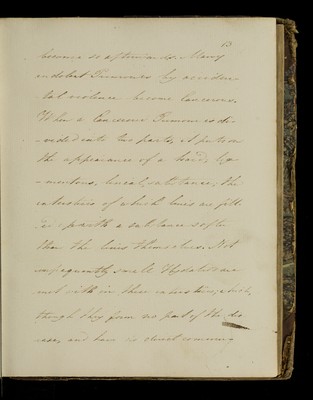 13
become so afterwards. Many
indolent Tumours by acciden-
tal violence become Cancerous.
When a Cancerous Tumour is di-
-vided into two parts, it puts on
the appearance of a hard,
lineal, substance; the
of which lines are fill
-ed with a substance softer
than the lines themselves. Not
unfrequently small Hydatids are
met with in these cavities, which,
though they form no part of the dis
ease, and have no direct communi